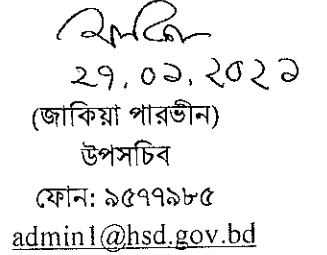 ২৭.০১.২০২১
(জাকিয়া পারভীন)
উপসচিব
ফোন: ৯৫৭৭৯৮৫
admin1@hsd.gov.bd